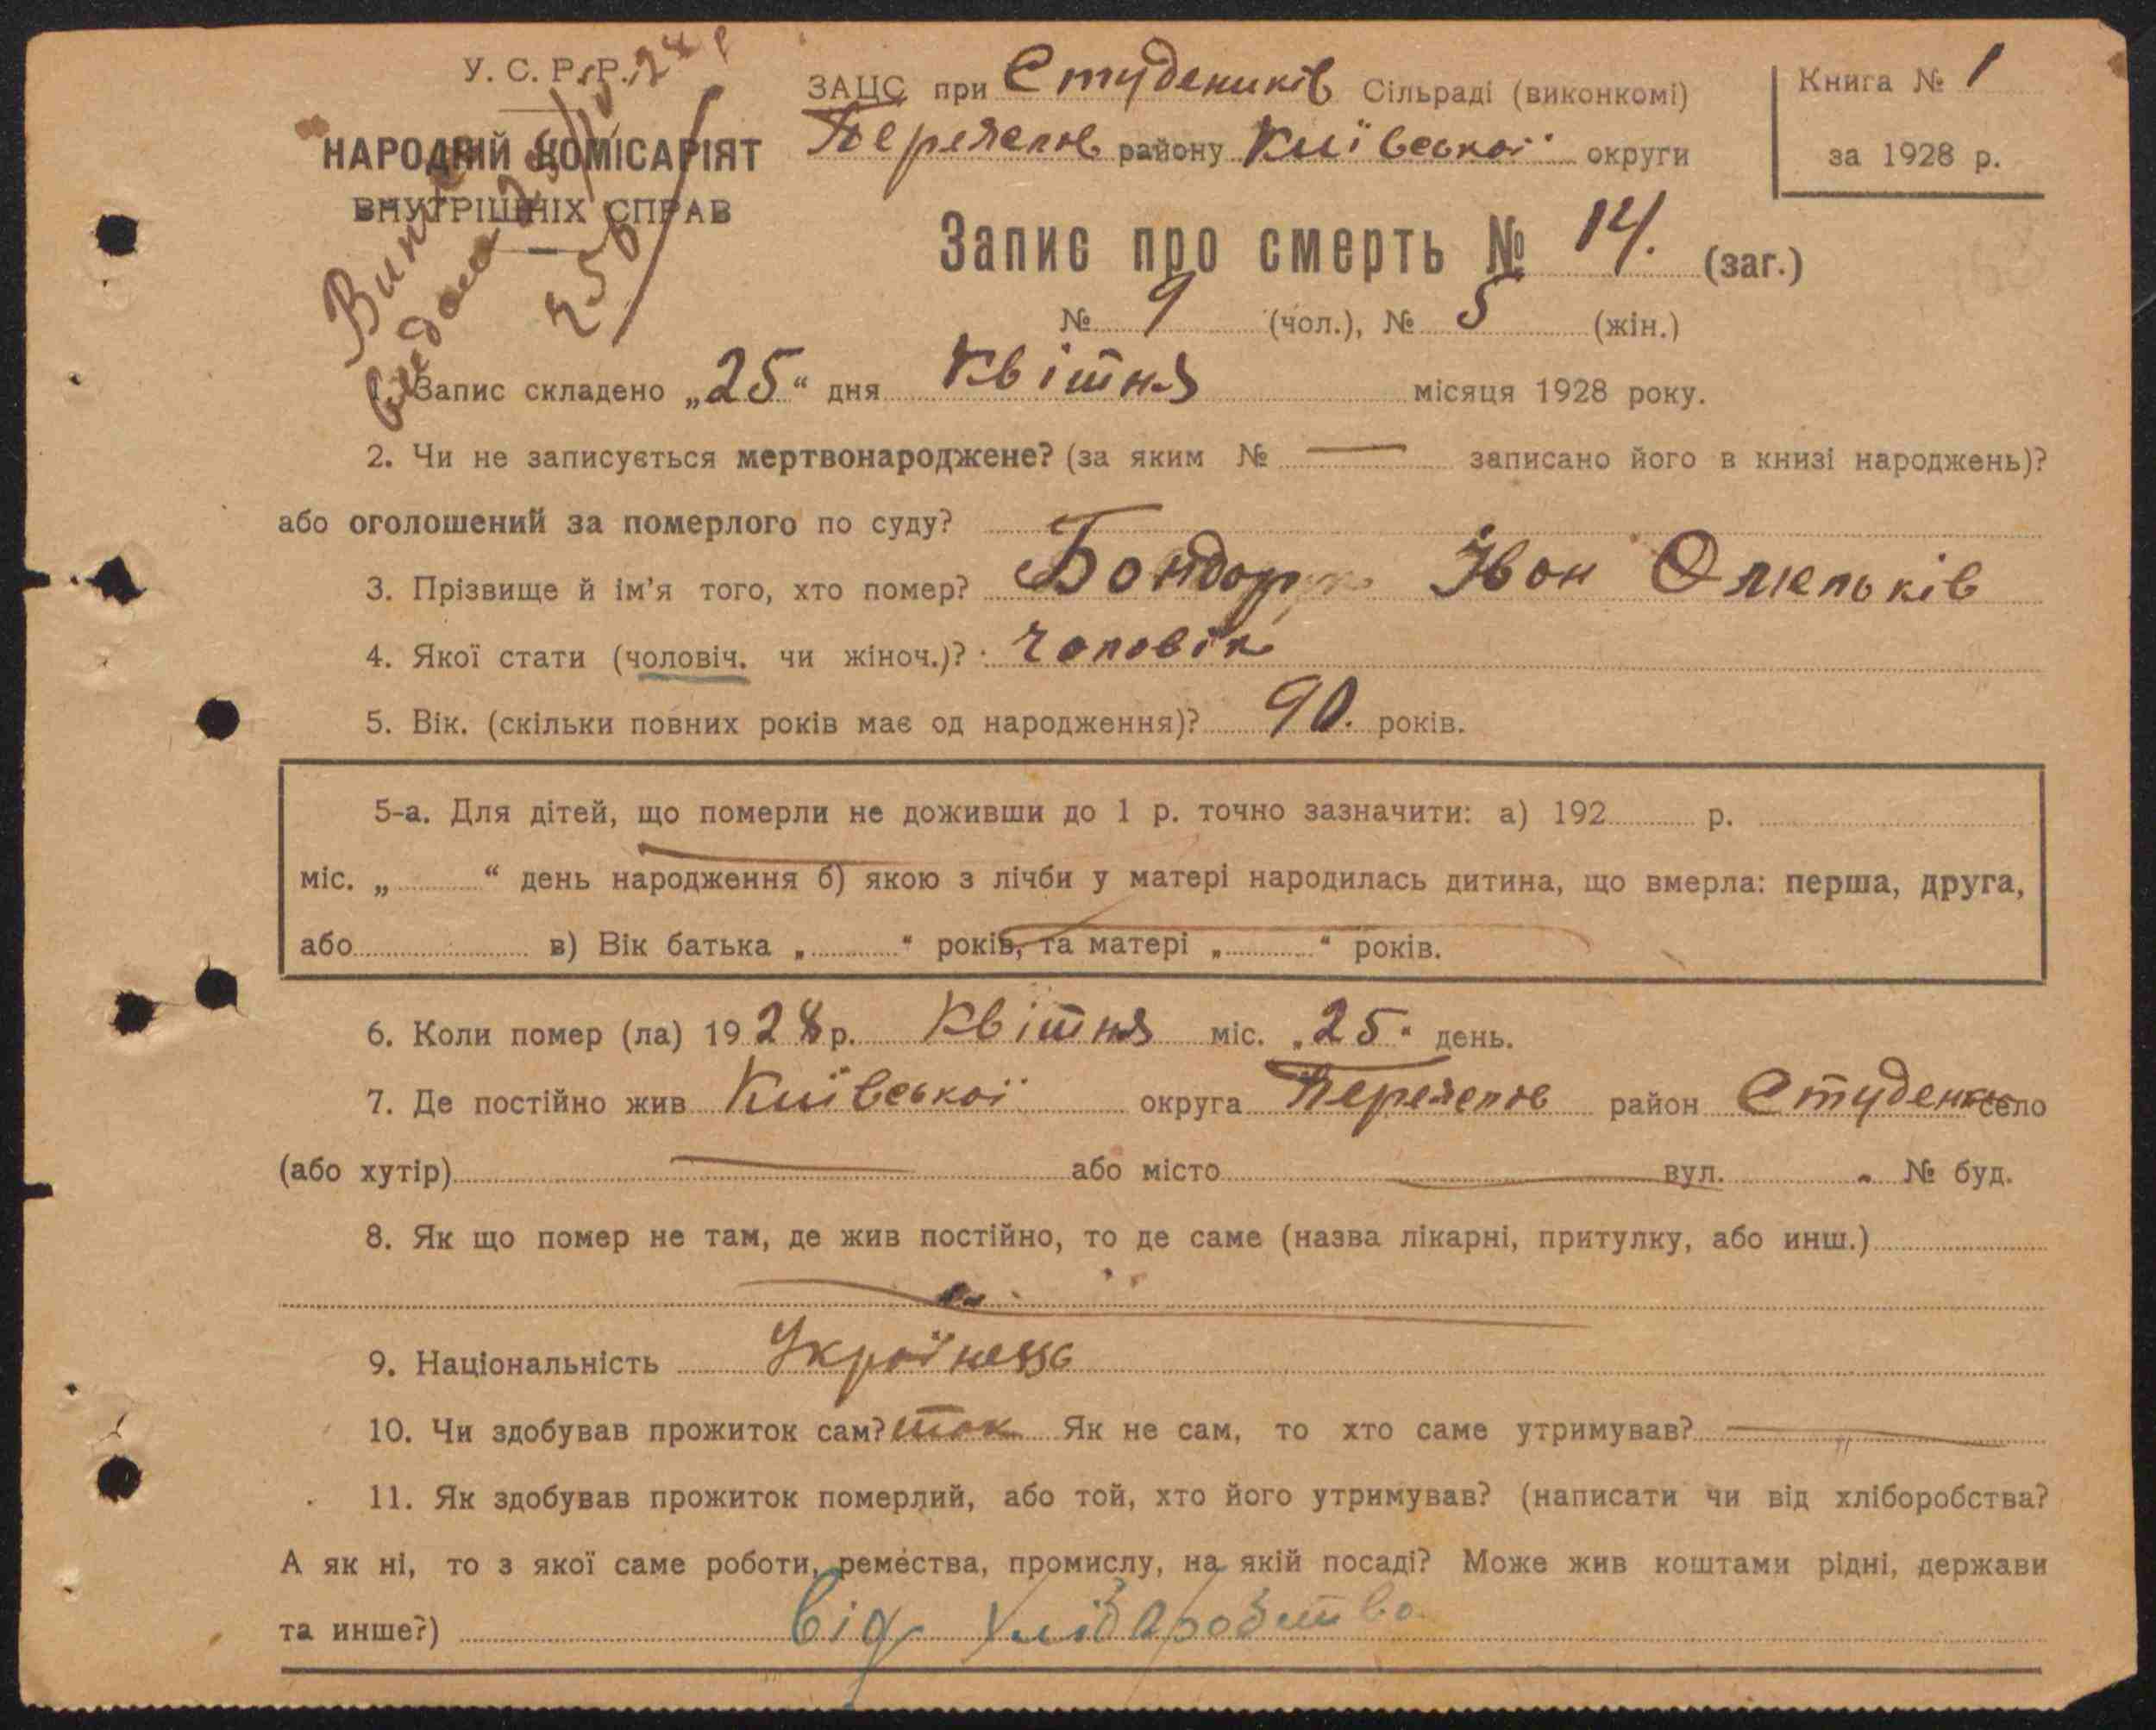 У. С. Р. Р.
НАРОДНІЙ КОМІСАРІЯТ
ВНУТРІШНІХ СПРАВ
ЗАЦС при Студеників Сільраді (виконкомі)
Переяслов району Київської округи
Книга № 1
за 1928 р.
Запис про смерть № 14. (заг.)
№ 9 (чол.), № 5 (жін.)
1. Запис складено „25“ дня Квітня місяця 1928 року.
2. Чи не записується мертвонароджене? (за яким № — записано його в книзі народжень)?
або оголошений за померлого по суду?
3. Прізвище й ім'я того, хто помер? Бондар Іван Омельків
4. Якої стати (чоловіч. чи жіноч.)? чоловік
5. Вік. (скільки повних років має од народження)? 90. років.
5-а. Для дітей, що померли не доживши до 1 р. точно зазначити: а) 192 р.
міс. „ “ день народження б) якою з лічби у матері народилась дитина, що вмерла: перша, друга,
або в) Вік батька „ “ років, та матері „ “ років.
6. Коли помер (ла) 1928 р. Квітня міс. „25“ день.
7. Де постійно жив Київської округа Переяслов район Студеник село
(або хутір) — або місто — вул. № буд.
8. Як що помер не там, де жив постійно, то де саме (назва лікарні, притулку, або инш.)
9. Національність Українець
10. Чи здобував прожиток сам? так Як не сам, то хто саме утримував? —
11. Як здобував прожиток померлий, або той, хто його утримував? (написати чи від хліборобства?
А як ні, то з якої саме роботи, ремества, промислу, на якій посаді? Може жив коштами рідні, держави
та инше?) від хліборобства